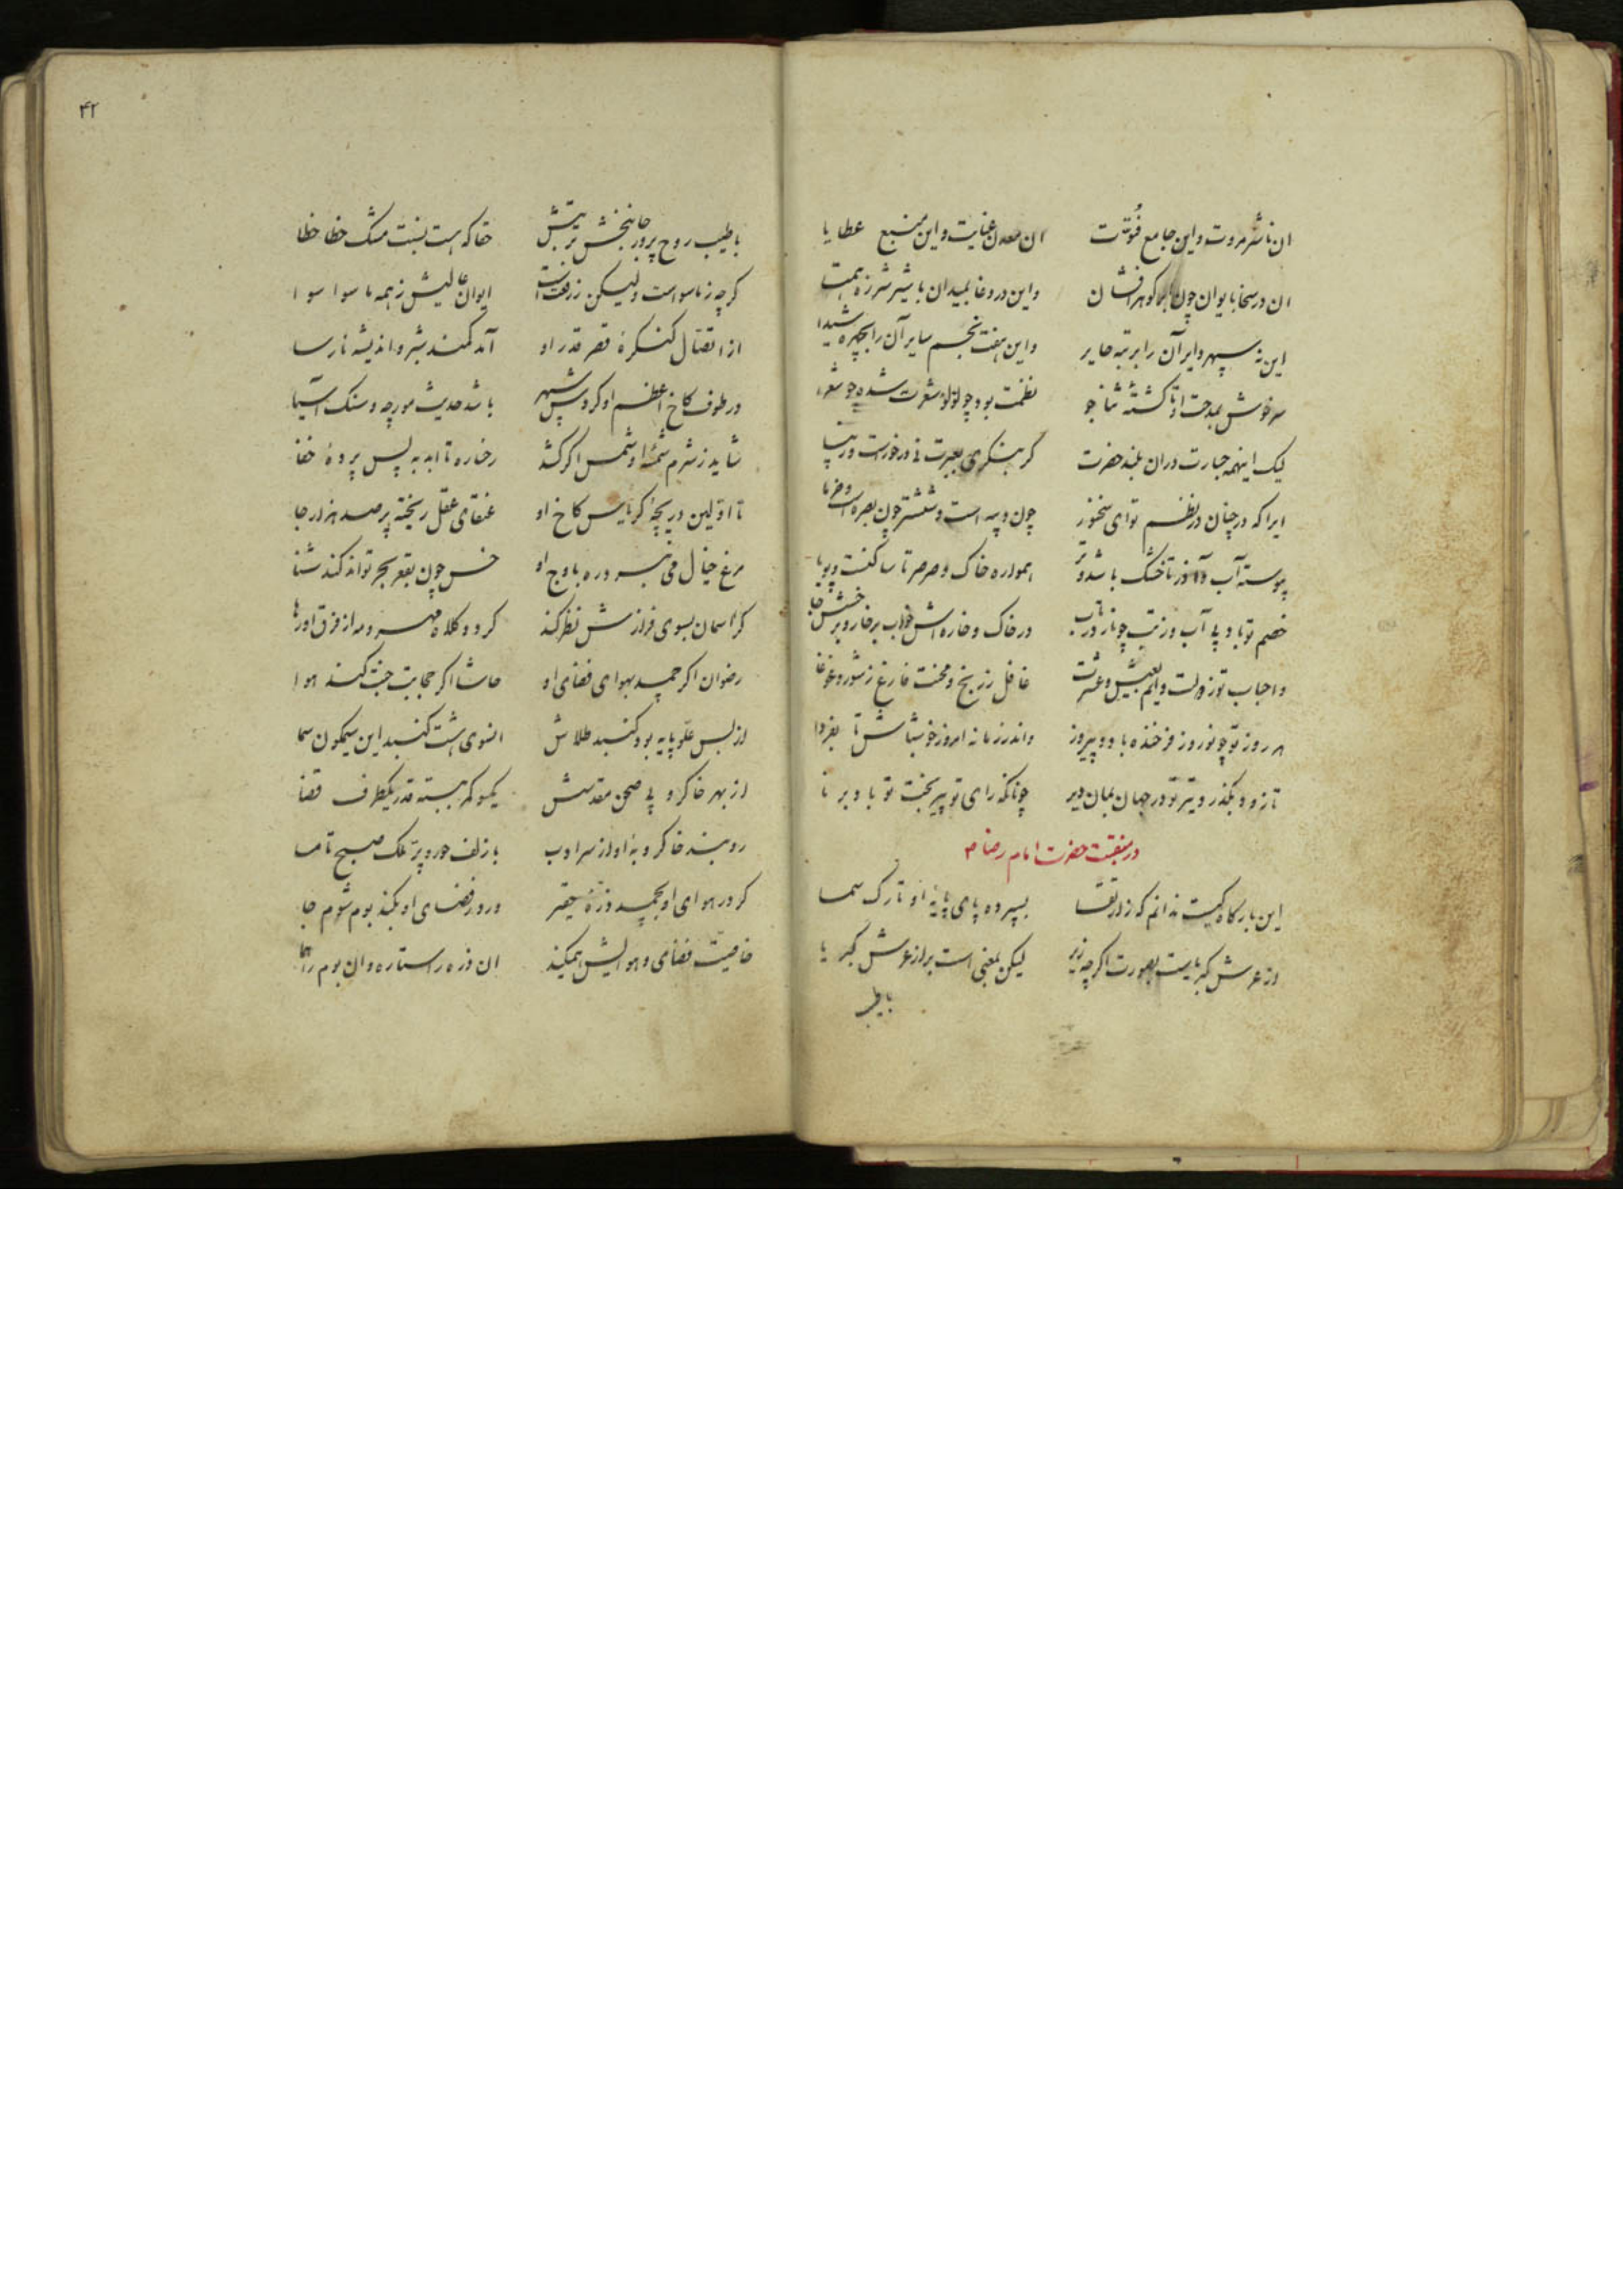 ان ناشر مروت و این جامع فُتوّت ان معدن عنایت و این منبع عطایا
ان در سخا بایوان چون کوهر افشان و این در وغا بمیدان با شیر شرزه همتا
این نه سپهر دایر آن را برتبه چایر و این هفت نجم سایر آن را بچهره شیدا
سرخوش بمدحت او تا کشته نظمت بود چو لؤلؤ شعرت شده چو شعرا
لیک اینهمه جسارت دران بلند حضرت کر بنکری بعبرت نی درخورست و زیبا
ایرا که در چنان در نظم توای سخنور چون و ششتر چون بصره است و خرما
پیوسته آب و آذر تا خشک باشد و تر همواره خاک و صرصر تا ساکنست و پویا
خصم تو باد بی آب وز تب چو نار در تاب در خاک و خاره اش خواب بر خار و بر خسش جا
و احباب تو ز دولت دایم بعیش و عشرت غافل ز رنج و محنت فارغ ز شور و غوغا
هر روز تو چو نوروز فرخنده باد و پیروز و اندر زمانه امروز خوش باش تا بفردا
تا زود بکذرد تیر تو در جهان بمان دیر چونانکه رای تو پیر بخت تو باد برنا
در منقبت حضرت امام رضا ع
این بارکاه کیست ندانم که ز ارتقا بسپرده پای پایهٔ او تارک سما
از عرش کبریاست بصورت اکرچه زیر لیکن بمعنی است بر از عرش کبریا
باطیب
۴۲
باطیب روح پرور جانبخش تربتش حقا که هست نسبت مشک خطا خطا
کرچه ز ماسواست ولیکن ز رفعت است ایوان عالیش ز همه ماسوا سوا
از اتصال کنکرهٔ قصر قدر او آمد کمند شیر و اندیشه نارسا
در طوف کاخ اعظم او کردش سپهر باشد حدیث مورچه و سنک آسیا
شاید ز شرم شمسهٔ او شمس اگر کشد رخساره تا ابد به پس پردهٔ خفا
تا اولین دریچهٔ کریاس کاخ او عنقای عقل ریخته پر صد هزار جا
مرغ خیال می نبرد ره باوج او خس چون بقعر بحر تواند کند شنا
کر آسمان بسوی فرازش نظر کند کردد کلاه مهر و مه از فرق او رها
رضوان اکر چمد بهوای فضای او حاشا اکر بجانب جنت کند هوا
از بس علو پایه بود کنبد طلاش انسوی هشت کنبد این سیمکون سما
از بهر خاکروبی صحن مقدسش یکسو کمر ببسته قدر یکطرف قضا
روبند خاکروبهٔ او از سر ادب با زلف حور و پر ملک صبح تا مسا
کر در هوای او بچمد ذرهٔ حقیر ور در فضای او بکند بوم شوم جا
خاصیت فضای و هوایش همیکند ان ذره را ستاره و ان بوم را هما